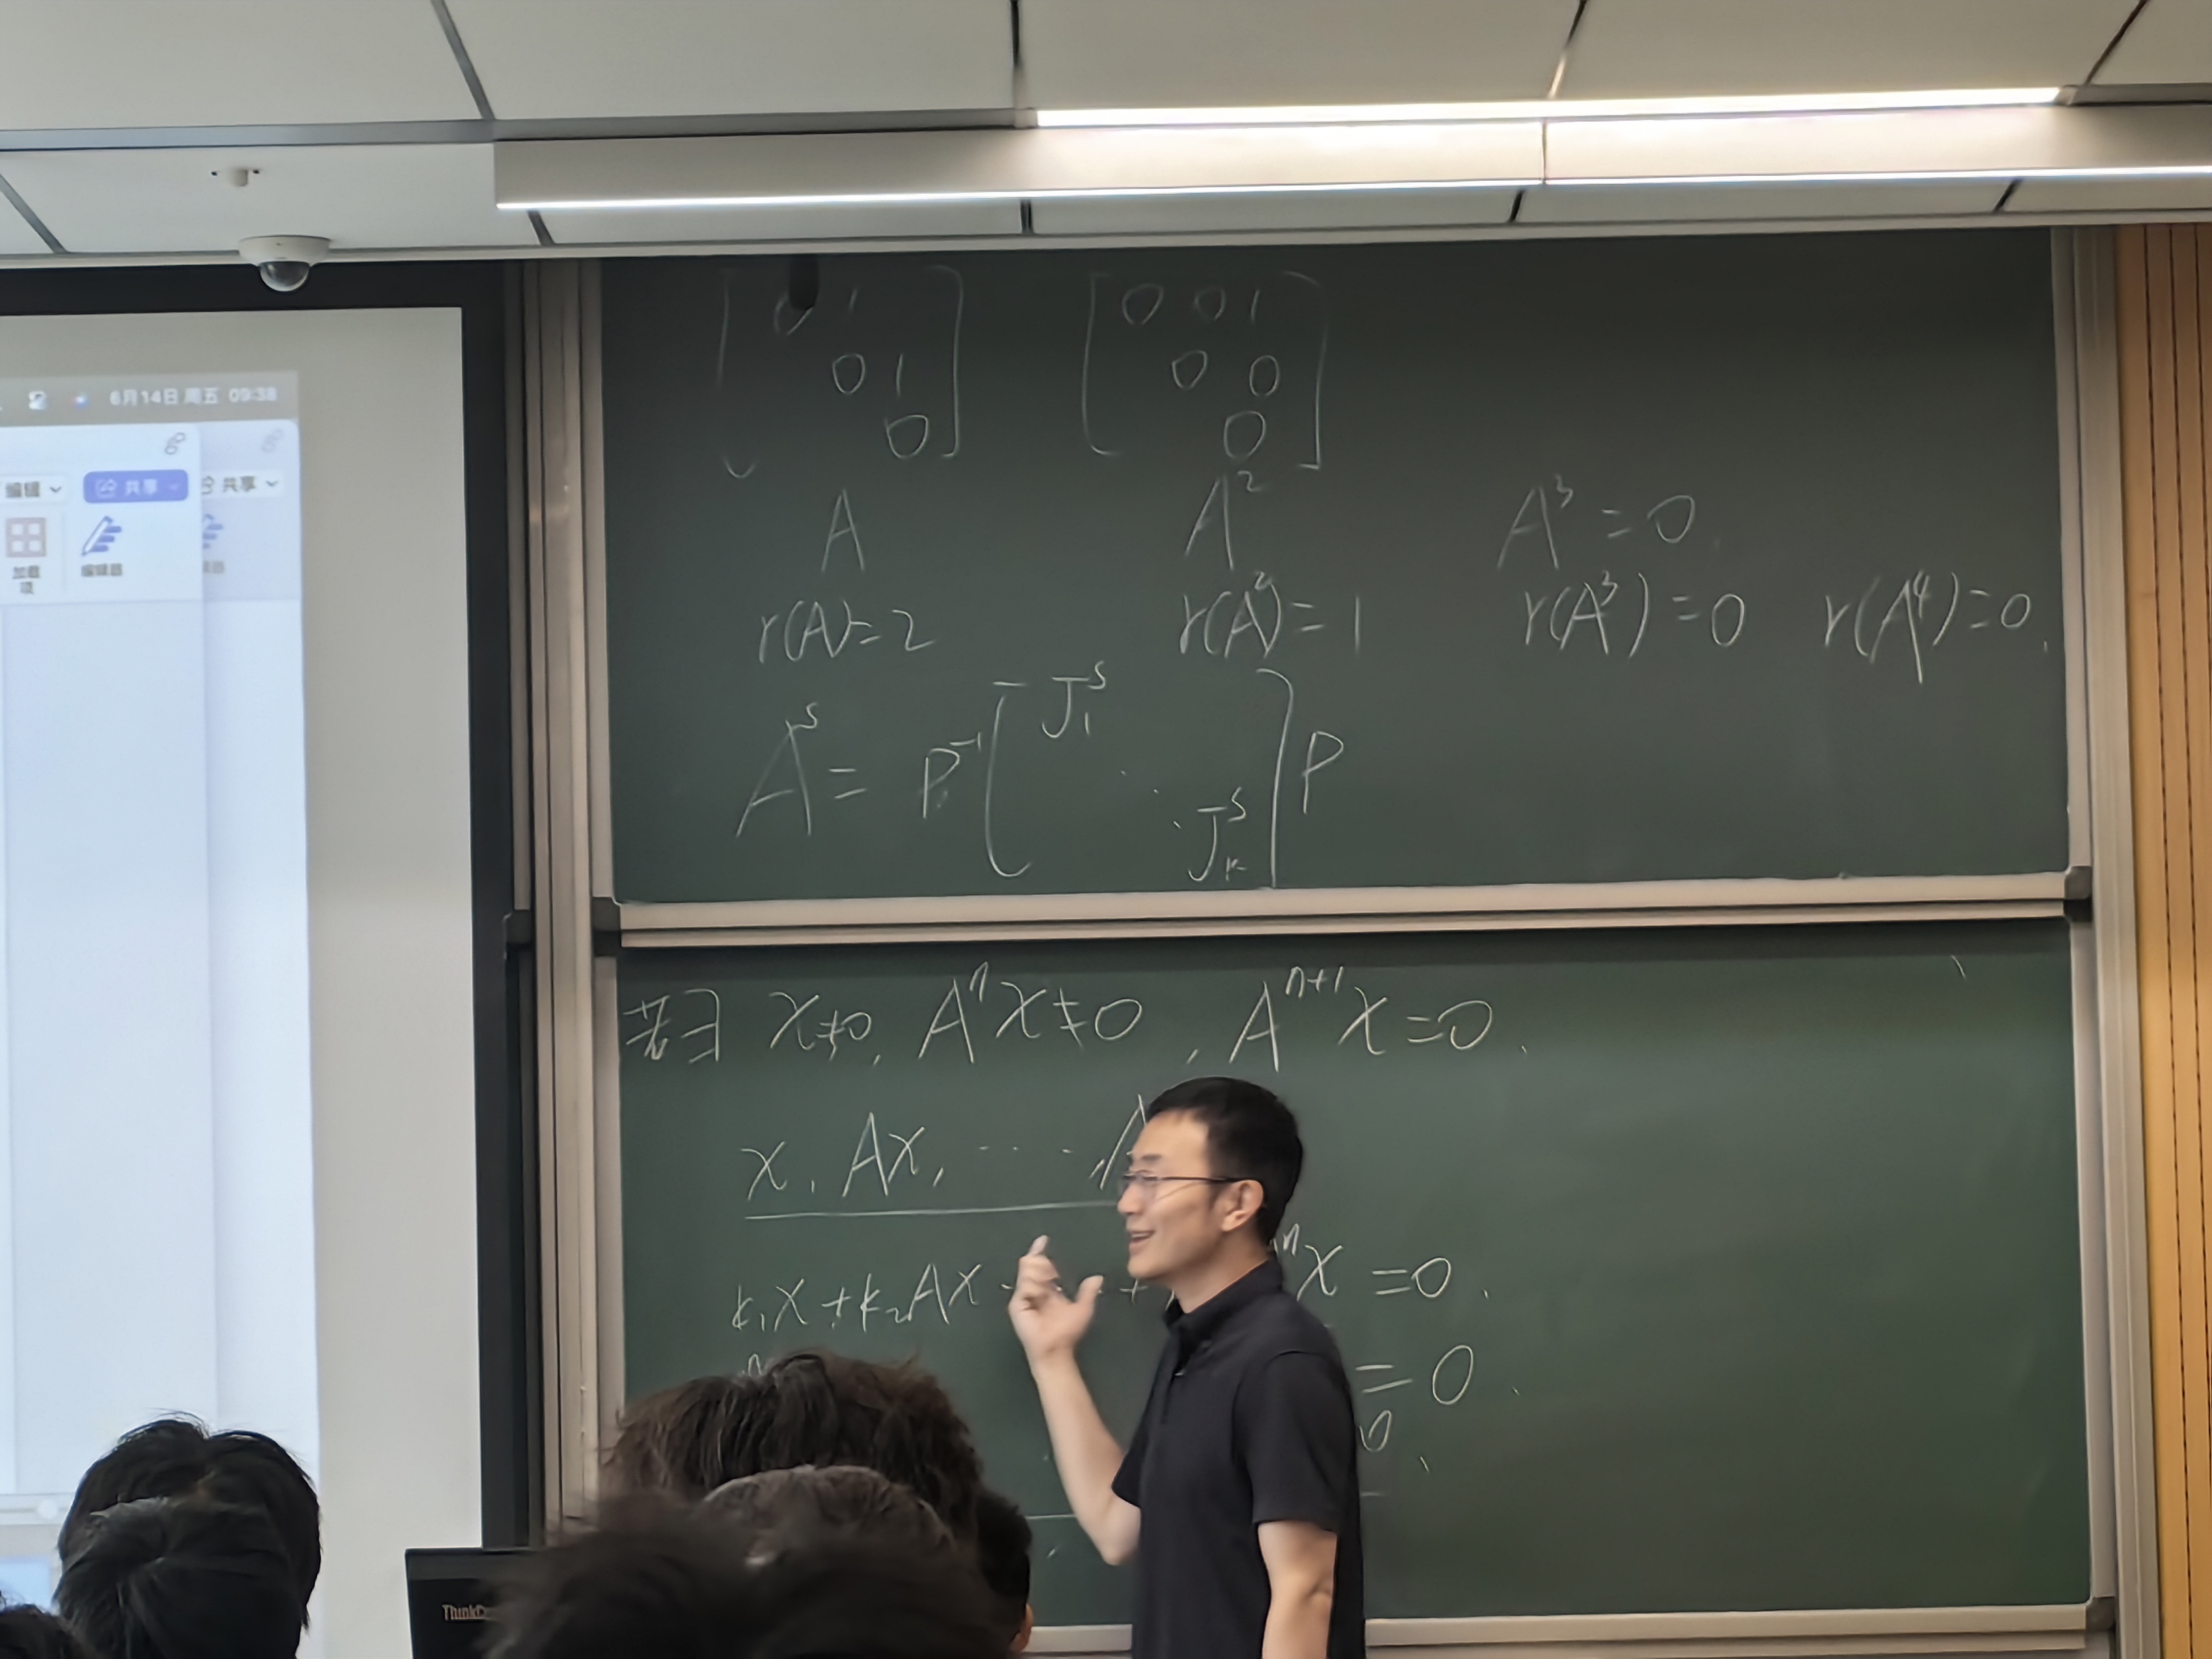 6月14日 周五 09:38
编辑 共享 共享
加载项 编辑器
0 1
0 1
0
0 0 1
0 0
0
A A² A³ = 0
r(A) = 2 r(A²) = 1 r(A³) = 0 r(A⁴) = 0.
Aˢ = P⁻¹ [ J₁ˢ ⋱ Jₖˢ ] P
若∃ x≠0, Aⁿx≠0, Aⁿ⁺¹x=0.
x, Ax, ⋯,
k₁x + k₂Ax + x = 0.
= 0.
0
ThinkC